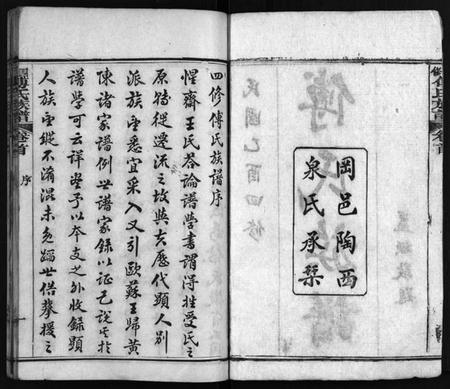 民國乙酉四修
傅氏族譜
岡邑陶西
泉氏承棃
四修傅氏族譜序
惺齋王氏荅論譜學書謂得姓受氏之
原轉從遷流之故與夫歷代顯人別
派族望悉宜采入又引歐蘇王歸黃
陳諸家譜例世譜家錄以証己說其於
譜學可云詳盡予以本支之外收錄顯
人族望縱不淆混未免蹈世借攀援之
傅氏族譜 卷首 序 一